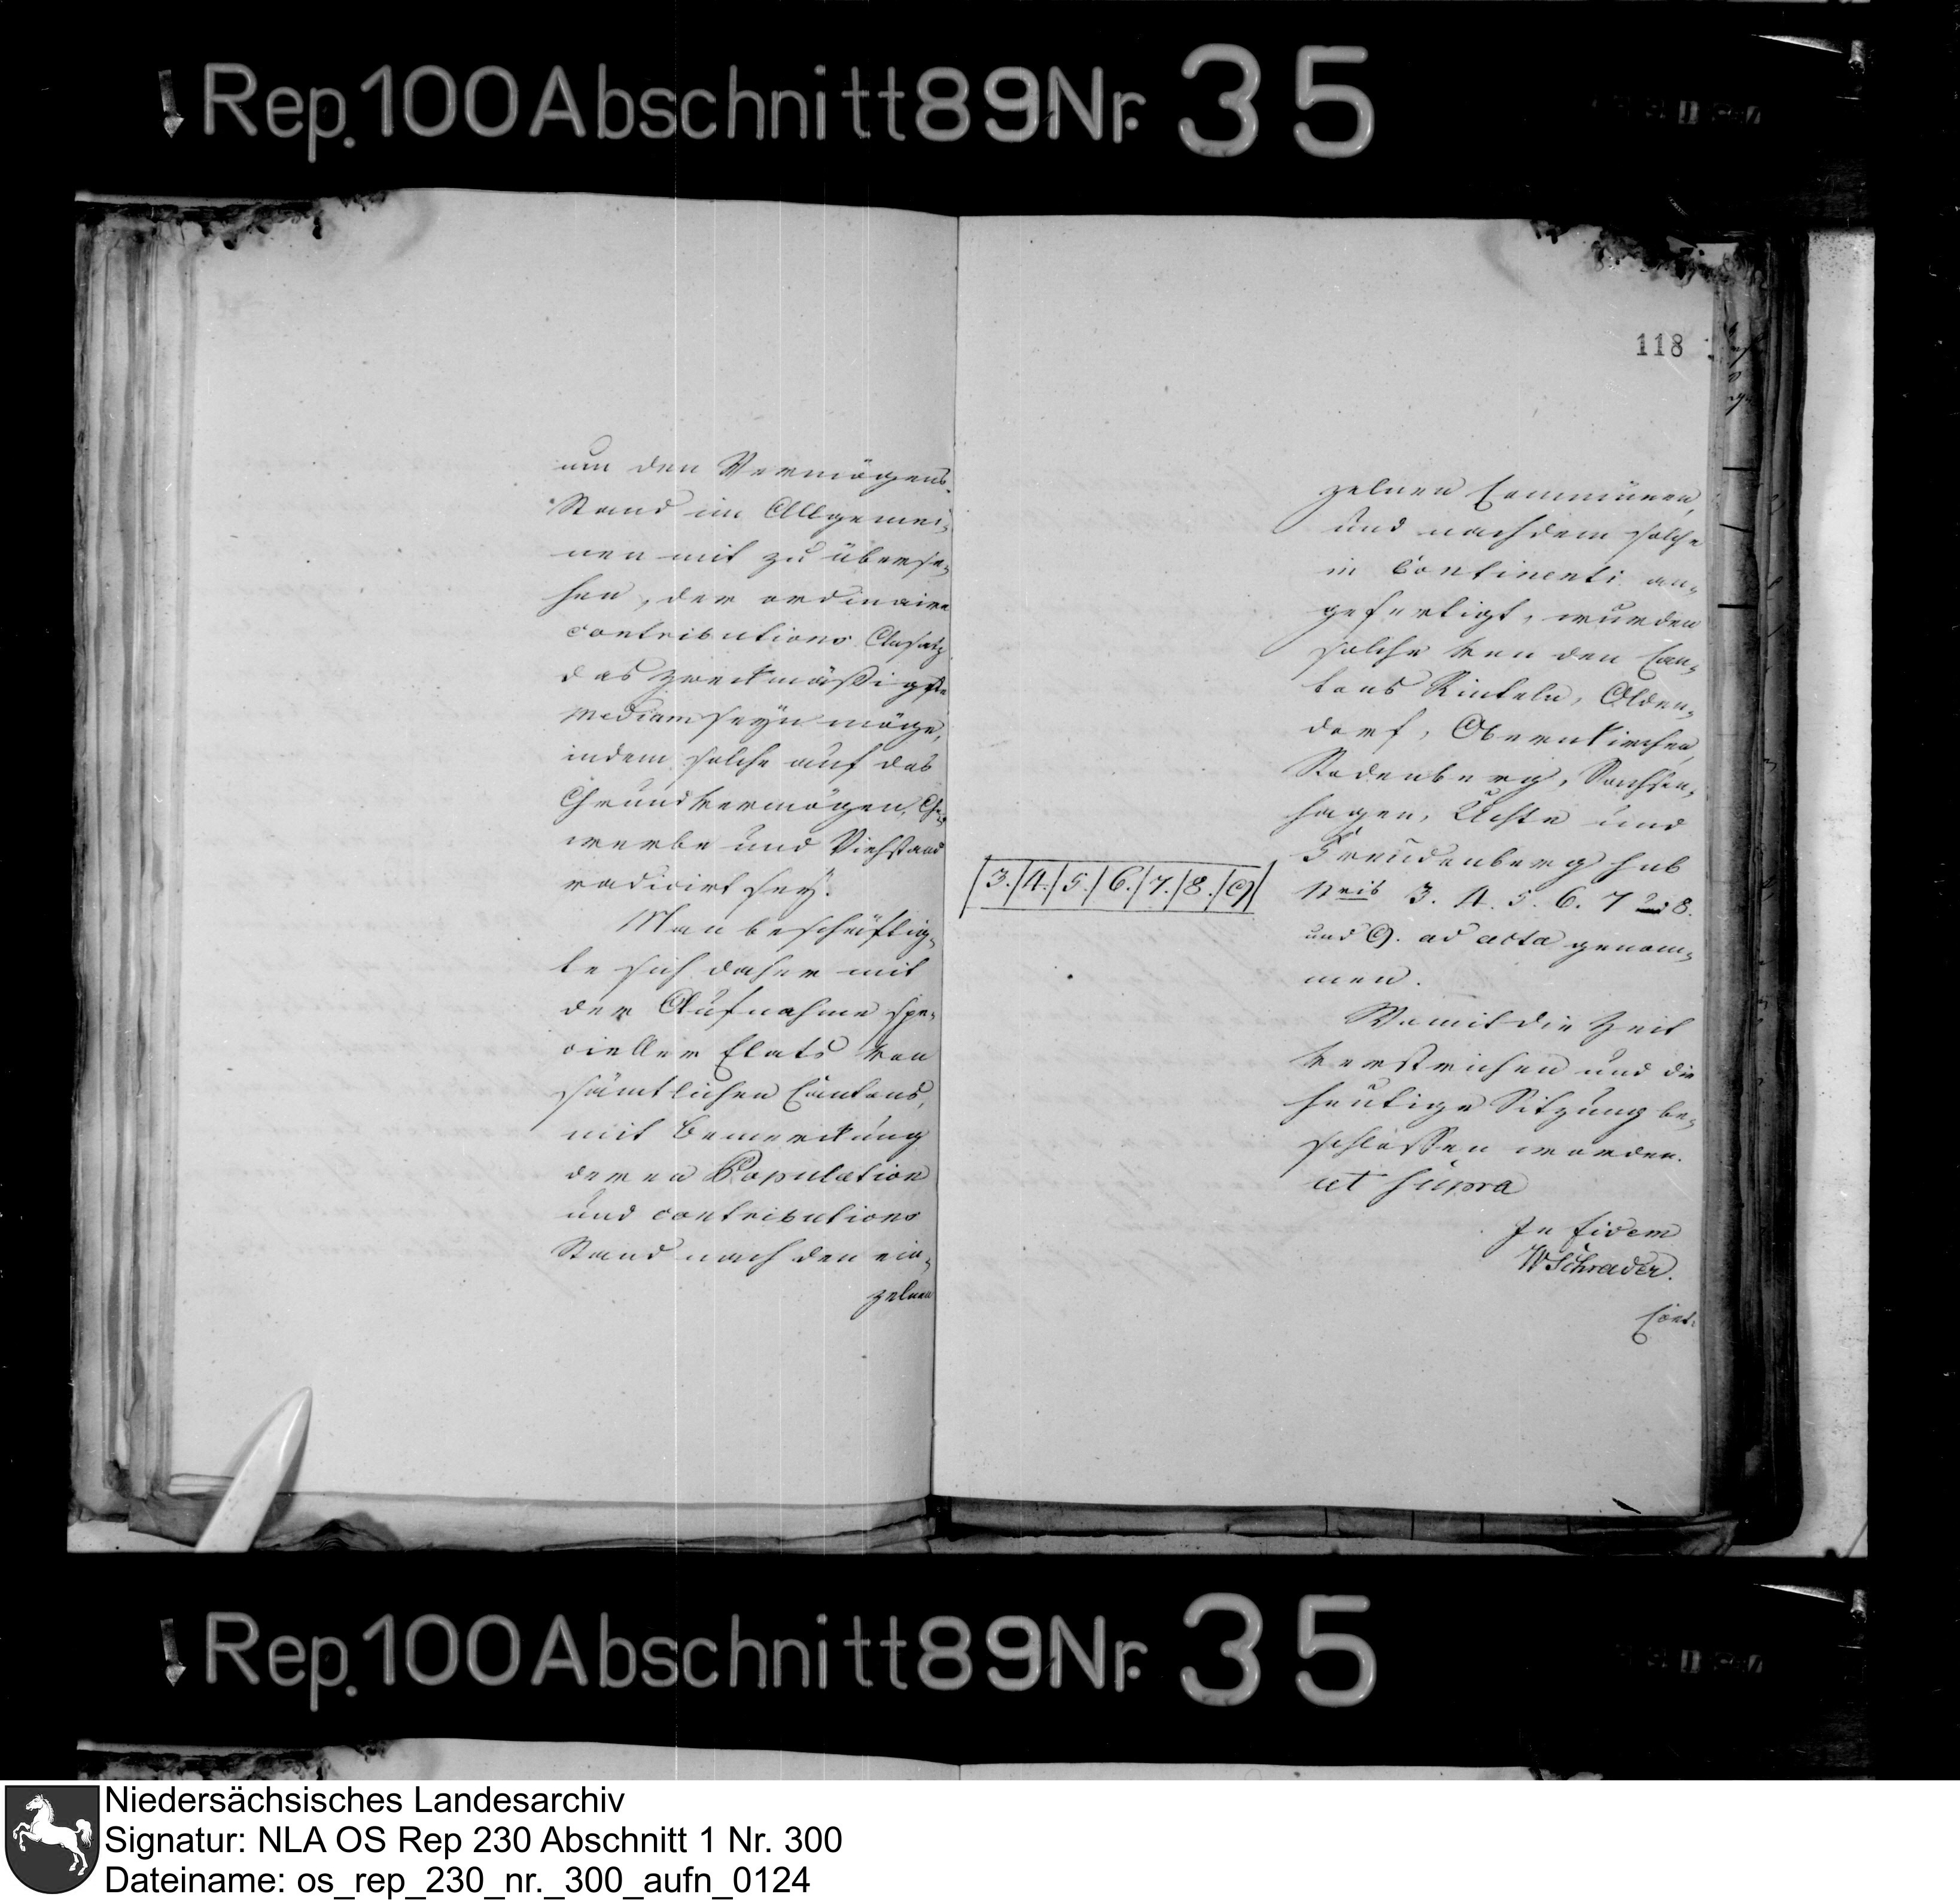 Rep. 100 Abschnitt 89 Nr. 35
um den Vermögens-
Stand im Allgemei-
nen mit zu überse-
hen, der ordinaire
contributions Ansatz
das zweckmäßigste
Medium seyn möge,
indem solche auf das
Grundvermögen, Ge-
werbe und Viehstand
radicirt sey.
Man beschäftig-
te sich daher mit
der Aufnahme spe-
cieller Etats von
sämtlichen Cantons,
mit Bemerckung
deren Population
und contributions
Stand nach den ein-
zelnen
118
zelnen Communen,
und nachdem solche
in Continenti an-
gefertigt, wurden
solche von den Can-
tons Rinteln, Olden-
dorf, Obernkirchen,
Rodenberg, Sachsen-
hagen, Uchte und
Freudenberg sub
3. / 4. / 5. / 6. / 7. / 8. / 9
Nris 3. 4. 5. 6. 7 und 8.
und 9. ad acta genom-
men.
Womit die Zeit
verstrichen und die
heutige Sitzung be-
schlossen worden.
ut supra
In fidem
W Schrader.
Cont:
Rep. 100 Abschnitt 89 Nr. 35
Niedersächsisches Landesarchiv
Signatur: NLA OS Rep 230 Abschnitt 1 Nr. 300
Dateiname: os_rep_230_nr._300_aufn_0124